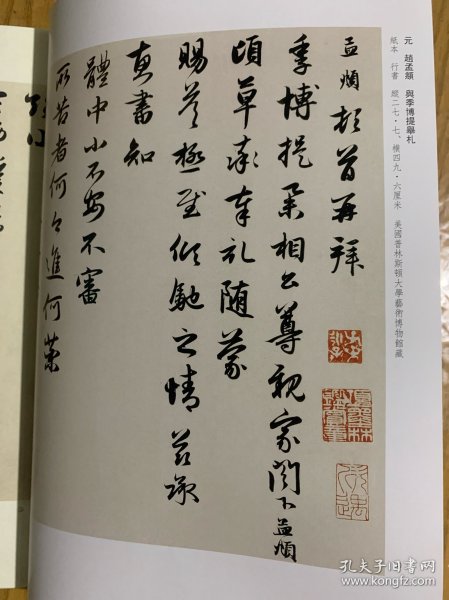 元　趙孟頫　與季博提舉札
紙本　行書　縱二七·七、橫四九·六厘米　美國普林斯頓大學藝術博物館藏
孟頫頓首再拜
季博提舉相公尊親家閣下孟頫
頃草率奉札随蒙
賜答極至傾馳之情茲承
惠書知
體中小不安不審
所苦者何如今進何藥
孔夫子旧书网
www.kongfz.com